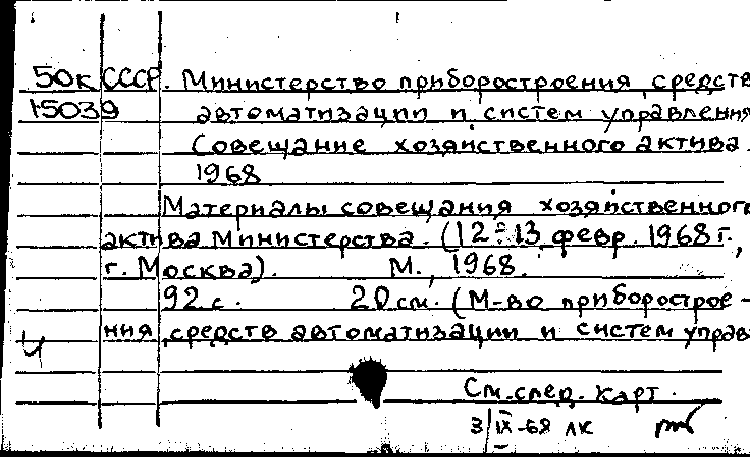 50к СССР. Министерство приборостроения, средств
15039 автоматизации и систем управления
Совещание хозяйственного актива.
1968
Материалы совещания хозяйственного
актива Министерства. (12-13 февр. 1968 г.,
г. Москва). М., 1968.
92 с. 20 см. (М-во приборострое-
ния, средств автоматизации и систем управ
Ч
См. след. карт.
3/IX-68 лк